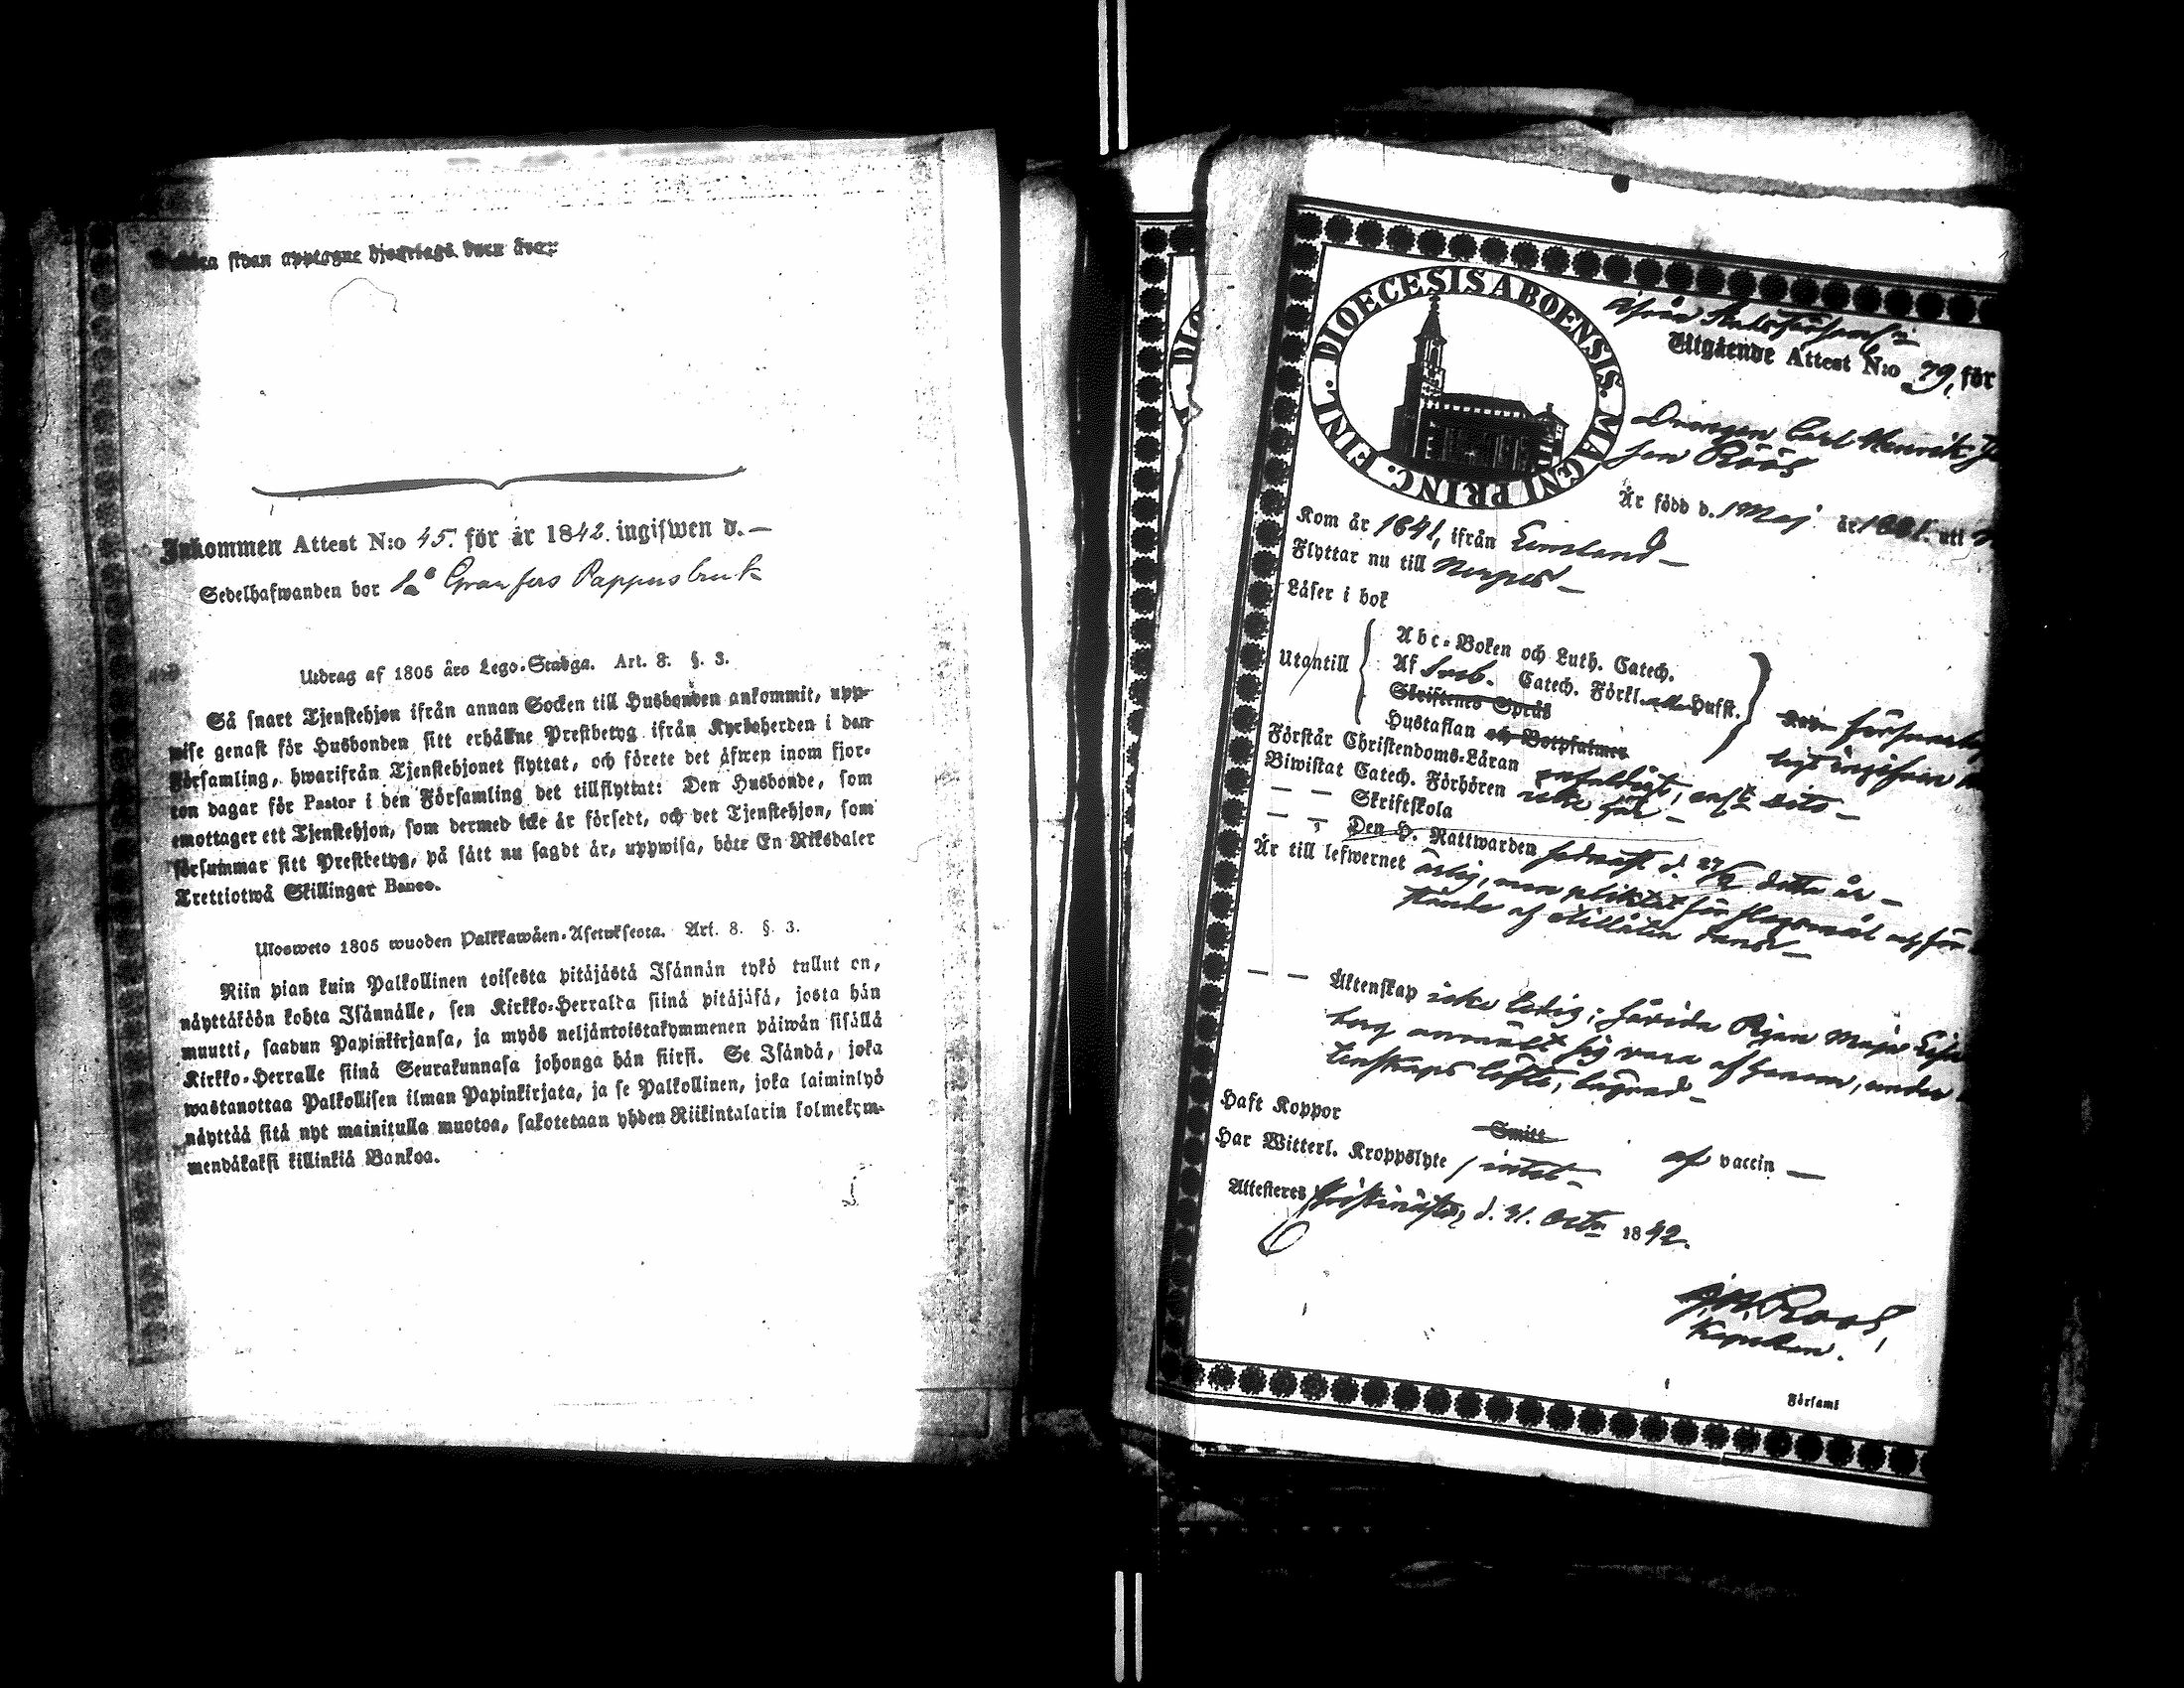 sidan upptagne hjonslags
Inkommen Attest N:o 45. för år 1842. ingifwen d. —
Sedelhafwanden bor på Granfors Pappersbruk
Utdrag af 1805 års Lego-Stadga. Art. 8. §. 3.
Så snart Tjenstehjon ifrån annan Socken till Husbonden ankommit, upp-
wise genast för Husbonden sitt erhållne Prestbetyg ifrån Kyrkoherden i den
Församling, hwarifrån Tjenstehjonet flyttat, och förete det äfwen inom fjor-
ton dagar för Pastor i den Församling det tillflyttat: Den Husbonde, som
emottager ett Tjenstehjon, som dermed icke är försedt, och det Tjenstehjon, som
försummar sitt Prestbetyg, på sätt nu sagdt är, uppwisa, böte En Riksdaler
Trettiotwå Skillingar Banco.
Ulosweto 1805 wuoden Palkkawäen-Asetuksesta. Art. 8. §. 3.
Niin pian kuin Palkollinen toisesta pitäjästä Isännän tykö tullut on,
näyttäköön kohta Isännälle, sen Kirkko-Herralta siinä pitäjäsä, josta hän
muutti, saadun Papinkirjansa, ja myös neljäntoistakymmenen päiwän sisällä
Kirkko-Herralle siinä Seurakunnasa johonga hän siirsi. Se Isändä, joka
wastanottaa Palkollisen ilman Papinkirjata, ja se Palkollinen, joka laiminlyö
näyttää sitä nyt mainitulla muotoa, sakotetaan yhden Riikintalarin kolmekym-
mendäkaksi killinkiä Bankoa.
DIOECESIS ABOENSIS. MAGNI PRINC. FINL.
Utgående Attest N:o 79, för
Drängen Carl Henrik
son Röös
Är född d. 1 Maj år
Kom år 1841, ifrån
Flyttar nu till Nerpes —
Läser i bok
Utantill
Abc-Boken och Luth. Catech.
Af Sveb. Catech. Förkl. Hufst.
Skriftenes Språk
Hustaflan och Botpsalmer
Förstår Christendoms-Läran enfaldigt,
Biwistat Catech. Förhören icke här —
— — Skriftskola
— — Den H. Nattwarden sednast d. 27/2 detta år —
Är till lefwernet ärlig, men pliktat för och för
af otillåten dans —
— — Äktenskap icke ledig; Pigan Maja
berg anmält sig vara af honom, under
tenskaps löfte, lägrad —
Haft Koppor Smitt af vaccin —
Har Witterl. Kroppslyte intet —
Attesteres Christinæstad d. 31. Octr 1842.
Roos,
Kapellan.
Församl